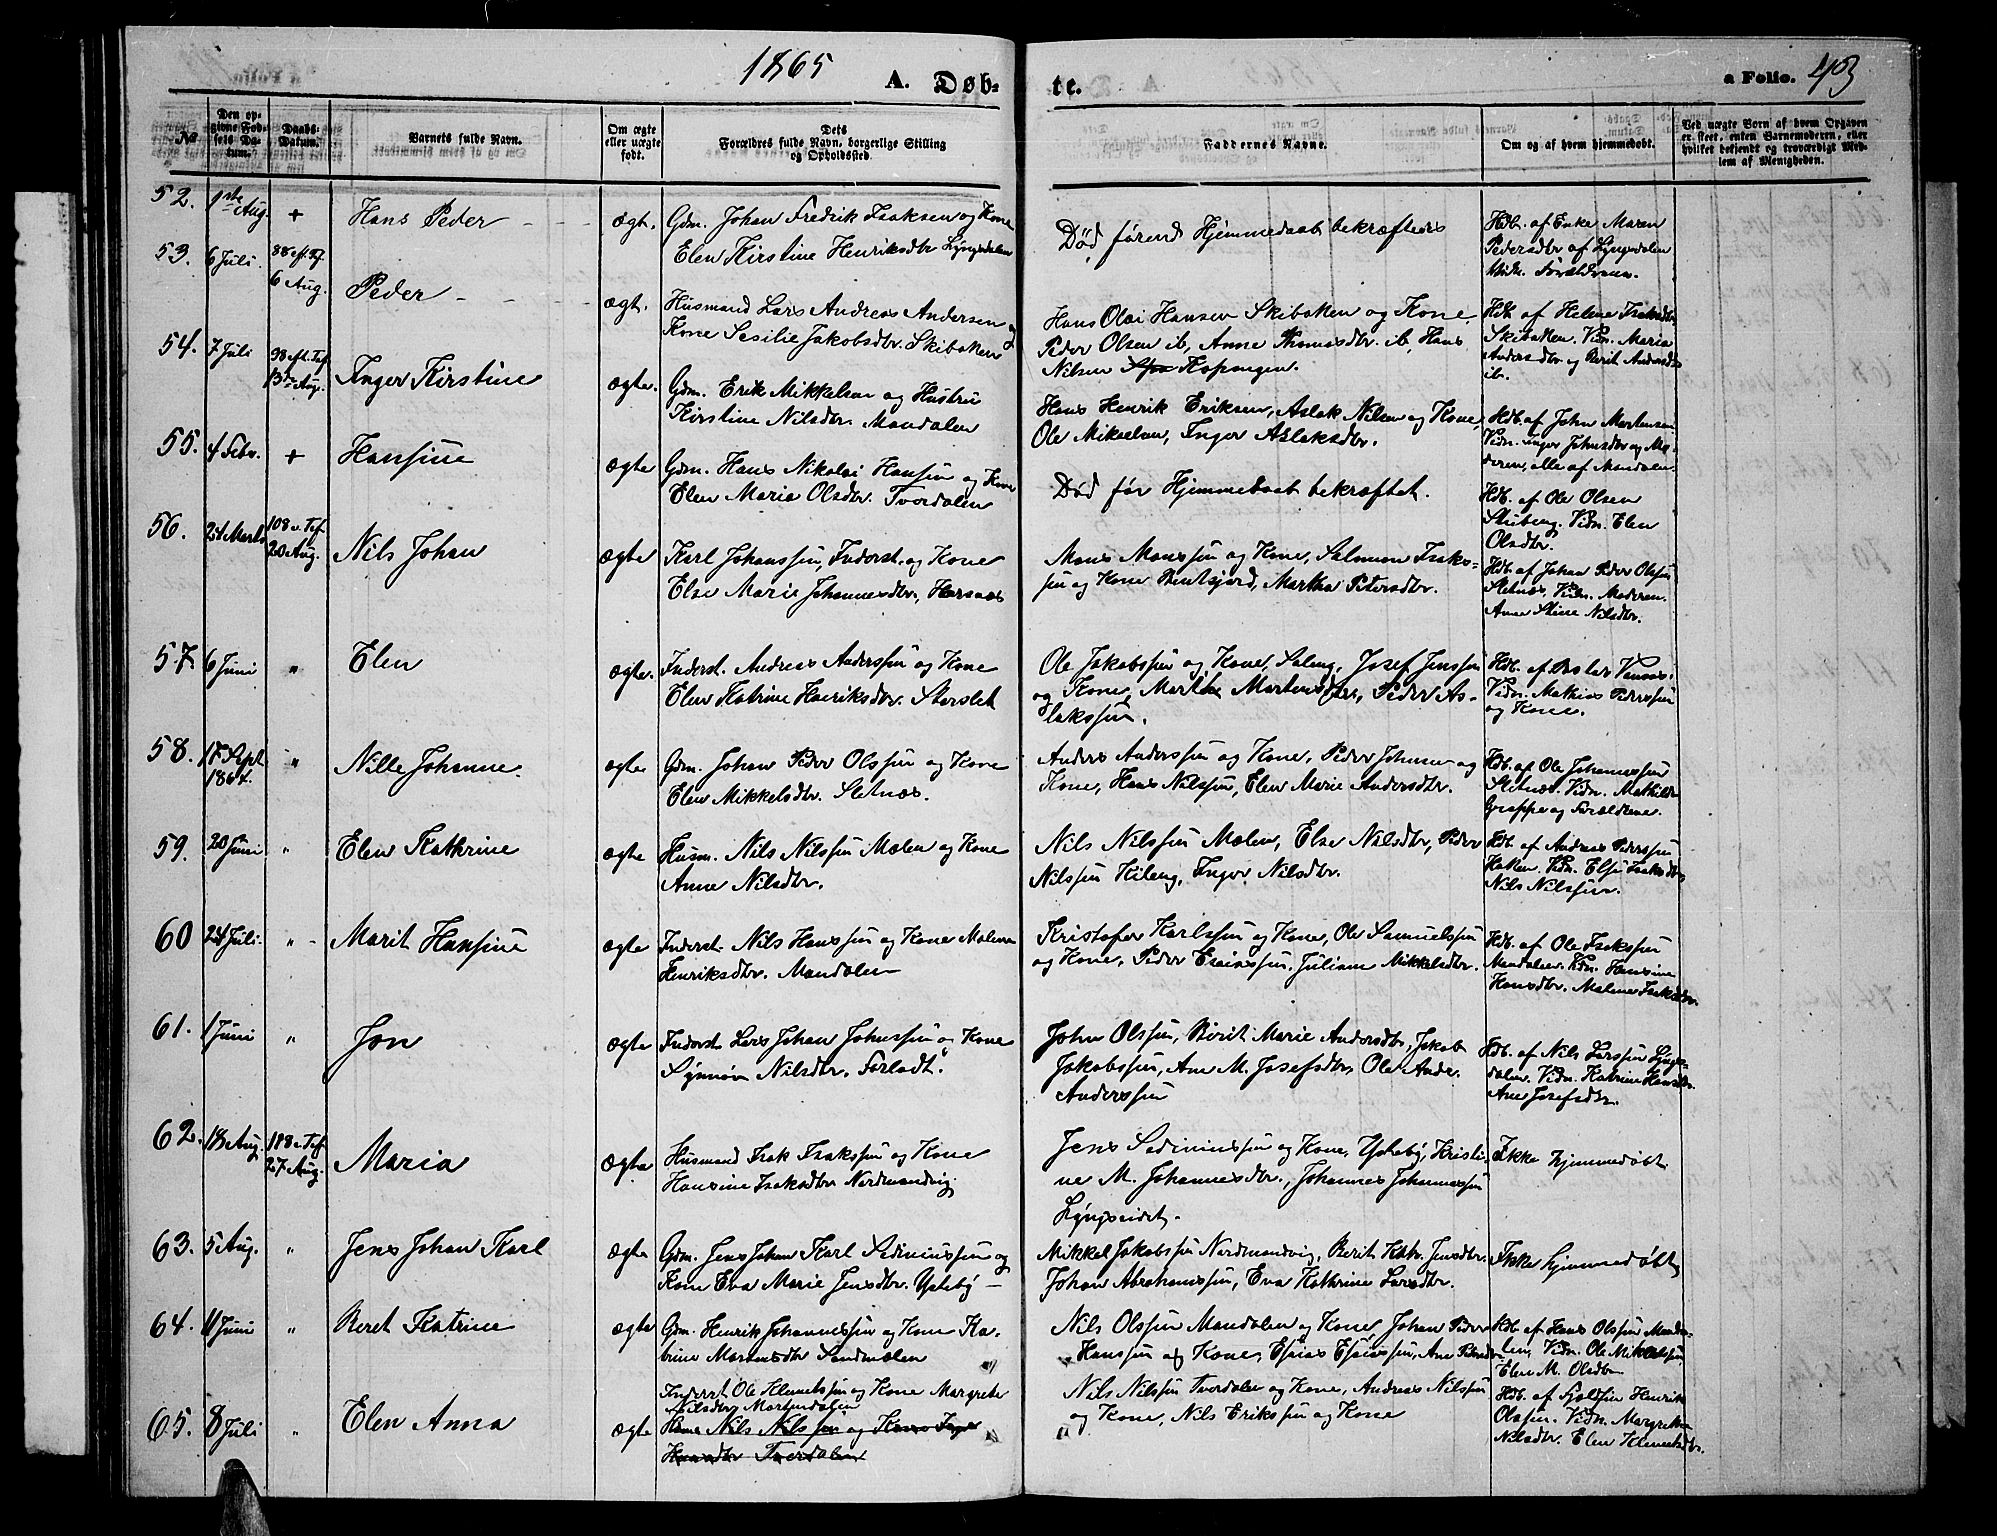 1865
A. Døb-
te.
a Folio. 43
No
Den op-
givne Fød-
sels Da-
tum.
Daabs-
Datum.
Barnets fulde Navn.
Om ægte
eller uægte
født.
Dets
Forældres fulde Navn, borgerlige Stilling
og Opholdssted.
Faddernes Navne.
Om og af hvem hjemmedøbt.
Ved uægte Børn af hvem Opgaven
er skeet, enten Barnemoderen, eller
hvilket bekjendt og troværdigt Med-
lem af Menigheden.
52. 1ste Aug. + Hans Peder ægt. Gdm. Johan Fredrik Isaksen og Kone
Elen Kirstine Henriksdtr Lyngsdalen
Død førend Hjemmedaab bekræftedes
Hdb. af Enke Maren
Pedersdtr af Lyngsdalen
Vidn. Forældrene.
53. 6 Juli. 8 S. eft. Tf.
6 Aug. Peder ægt. Husmand Lars Andreas Andersen og
Kone Sesilie Jakobsdtr. Skibotten
Hans Olai Hansen Skibotten og Kone,
Peder Olsen ib, Anne Thomasdtr. ib, Hans
Nilsen Kopangen.
Hdb. af Helene Isaksdtr
Skibotten. Vidn. Maria
Andersdtr og Berit Andersdtr
ib.
54. 7 Juli 9 S. eft. Tef.
13de Aug. Inger Kirstine ægte. Gdm. Erik Mikkelsen og Hustru
Kirstine Nilsdtr. Mandalen
Hans Henrik Eriksen, Aslak Nilsen og Kone,
Ole Mikkelsen, Inger Aslaksdtr.
Hdb. af John Mortensen
Vidn. Inger Johnsdtr og Mo-
deren, alle af Mandalen.
55. 4 Febr. + Hansine ægte Gdm. Hans Nikolai Hansen og Kone
Elen Maria Olsdtr. Tverdalen
Død før Hjemmedaab bekræftet.
Hdb. af Ole Olsen
Vidn. Elen
Olsdtr.
56. 24 Marts 10 S. e. Tef.
20 Aug. Nils Johan ægte Karl Johanssen, Inderst. og Kone
Else Marie Johannesdtr., Horsnæs
Mons Monssen og Kone, Salomon Isaks-
sen og Kone Bentsjord, Martha Petersdtr.
Hdb. af Johan Peder Olssen
Sletnæs, Vidn. Moderen.
Anne Stine Nilsdtr.
57. 6 Juni " Elen ægte. Inderst. Andreas Anderssen og Kone
Elen Katrine Henriksdtr. Storslet
Ole Jakobssen og Kone, Soleng, Josef Jenssen
og Kone, Marthe Martensdtr, Peder As-
lakssen.
Hdb. af
Vidn. Mathias Pederssen
og Kone.
58. 17 Sept
1864. " Nille Johanne. ægte Gdm. Johan Peder Olssen og Kone
Elen Mikkelsdtr. Sletnæs.
Anders Anderssen og Kone, Peder Johnsen og
Kone, Hans Nilssen, Elen Marie Andersdtr.
Hdb. af Ole Johannessen
Sletnæs. Vidn. Mathilde
Greppe og Forældrene.
59. 20 Juni " Elen Kathrine ægte Husm. Nils Nilssen Mælen og Kone
Anne Nilsdtr.
Nils Nilssen Mælen, Else Nilsdtr, Peder
Nilssen Kileng, Inger Nilsdtr.
Hdb. af Andreas Pederssen
Vidn. Else Isaksdtr
Nils Nilssen.
60 24 Juli. " Marit Hansine ægte Inderst. Nils Hanssen og Kone Malene
Henriksdtr. Mandalen
Kristofer Karlssen og Kone, Ole Samuelssen
og Kone, Peder Esaiassen, Juliane Mikkelsdtr.
Hdb. af Ole Isakssen
Mandalen. Vidn. Hansine
Hansdtr. Malene Isaksdtr.
61. 1 Juni " Jon ægte Inderst Lars Johan Johnssen og Kone
Synnøv Nilsdtr. Forladt.
John Olssen, Berit Marie Andersdtr, Jakob
Jakobssen, Ane M. Josefsdtr, Ole Andr.
Anderssen
Hdb. af Nils Larssen Lyngs-
dalen. Vidn. Katrine Hansdtr.
Ane Josefsdtr.
62. 18 Aug. 11 S. e. Tef.
27. Aug. Maria Ægte Husmand Isak Isakssen og Kone
Hansine Isaksdtr Nordmandvig.
Jens Sediniussen og Kone, Ysteby, Kristi-
ne M. Johannesdtr., Johannes Johannessen
Lyngseidet.
Ikke hjemmedøbt
63. 5 Aug. " Jens Johan Karl ægte Gdm. Jens Johan Karl Sediniussen og
Kone Eva Marie Jensdtr. Ysteby
Mikkel Jakobssen Nordmandvig, Berit Katr. Jensdtr.
Johan Abrahamssen, Eva Kathrine Larsdtr.
Ikke hjemmedøbt
64. 11 Juni " Beret Katrine ægte Gdm. Henrik Johannessen og Kone Ka-
trine Martensdtr Sandmælen
Nils Olssen Mandalen og Kone, Johan Peder
Hanssen og Kone, Esaias Esaiassen, Ane Pedersdtr
Hdb. af Hans Olssen Manda-
len, Vidn. Ole Mikkelssen
Elen M. Olsdtr
65. 8 Juli " Elen Anna ægte Inderst Ole Klemetssen og Kone Margrete
Nilsdtr Mortendalen
Nils Nilssen og Kone Inger
Hansdtr Tverdalen
Nils Nilssen Tverdalen og Kone, Andreas Nilssen
og Kone, Nils Erikssen og Kone
Hdb. af Henrik
Olssen. Vidn. Margrethe
Nilsdtr. Elen Klemetsdtr.